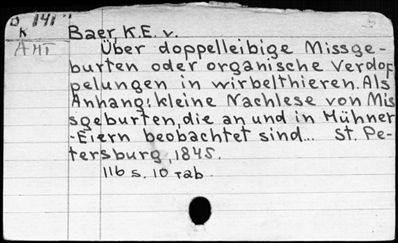 B 141
K
AMT
Baer, K.E. v.
Über doppelleibige Missge-
burten oder organische Verdop
pelungen in wirbelthieren. Als
Anhang: kleine Nachlese von Mis
sgeburten, die an und in Hühner
-Eiern beobachtet sind... St. Pe-
tersburg, 1845.
116 s. 10 Tab